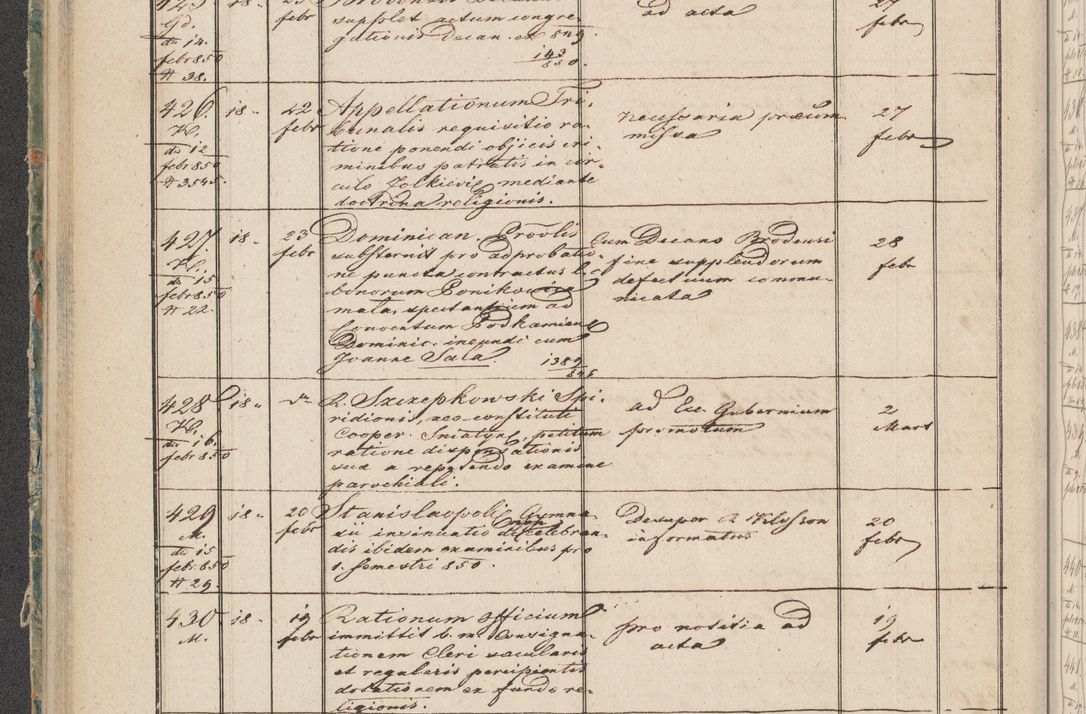 supplet actum congre-
gationis Decan. ex 849
143
850.
ad acta
27
febr
Gd.
dto 14.
febr 850
# 38.
426.
K.
dto 12
febr 850
# 3545.
18
22
febr
Appellationum Tri-
bunalis requisitio ra-
tione ponendi objicis cri-
minibus patratis in cir-
culo Zolkiewie. mediante
doctrina religionis.
necessaria præum
missa
27
febr
427.
K.
dto 15
febr 850
# 22.
18
23
febr
Dominican. Provlis
substernit pro adprobatio-
ne puncta contractus l. c.
bonorum Ponikowica
mala, spectantium ad
Conventum Podkamien
Dominic. ineundi cum
Joanne Sala.
1389
848
Cum Decano Brodensi
fine supplendorum
defectuum commu-
nicata
28
febr
428
K.
dto 16.
febr 850
18
dto
R. Szczepkowski Spi-
ridionis, neo-constituti
Cooper. Sniatyn, petitum
ratione dispensationis
suæ a repetendo examine
parochiali.
ad Exc. Gubernium
promotum
2
Mart
429
M.
dto 15
febr 850
# 29.
18
20
febr
Stanislaopoli Gymna-
sii insinuatio de non celebran-
dis ibidem examinibus pro
1. semestri 850.
Desuper R.
informatus
20
febr
430
M.
18
19
febr
Rationum officium
immittit b. m. Consigna-
tionem Cleri sæcularis
et regularis percipientis
dotationem ex fundo re-
ligionis.
pro notitia ad
acta
19
febr